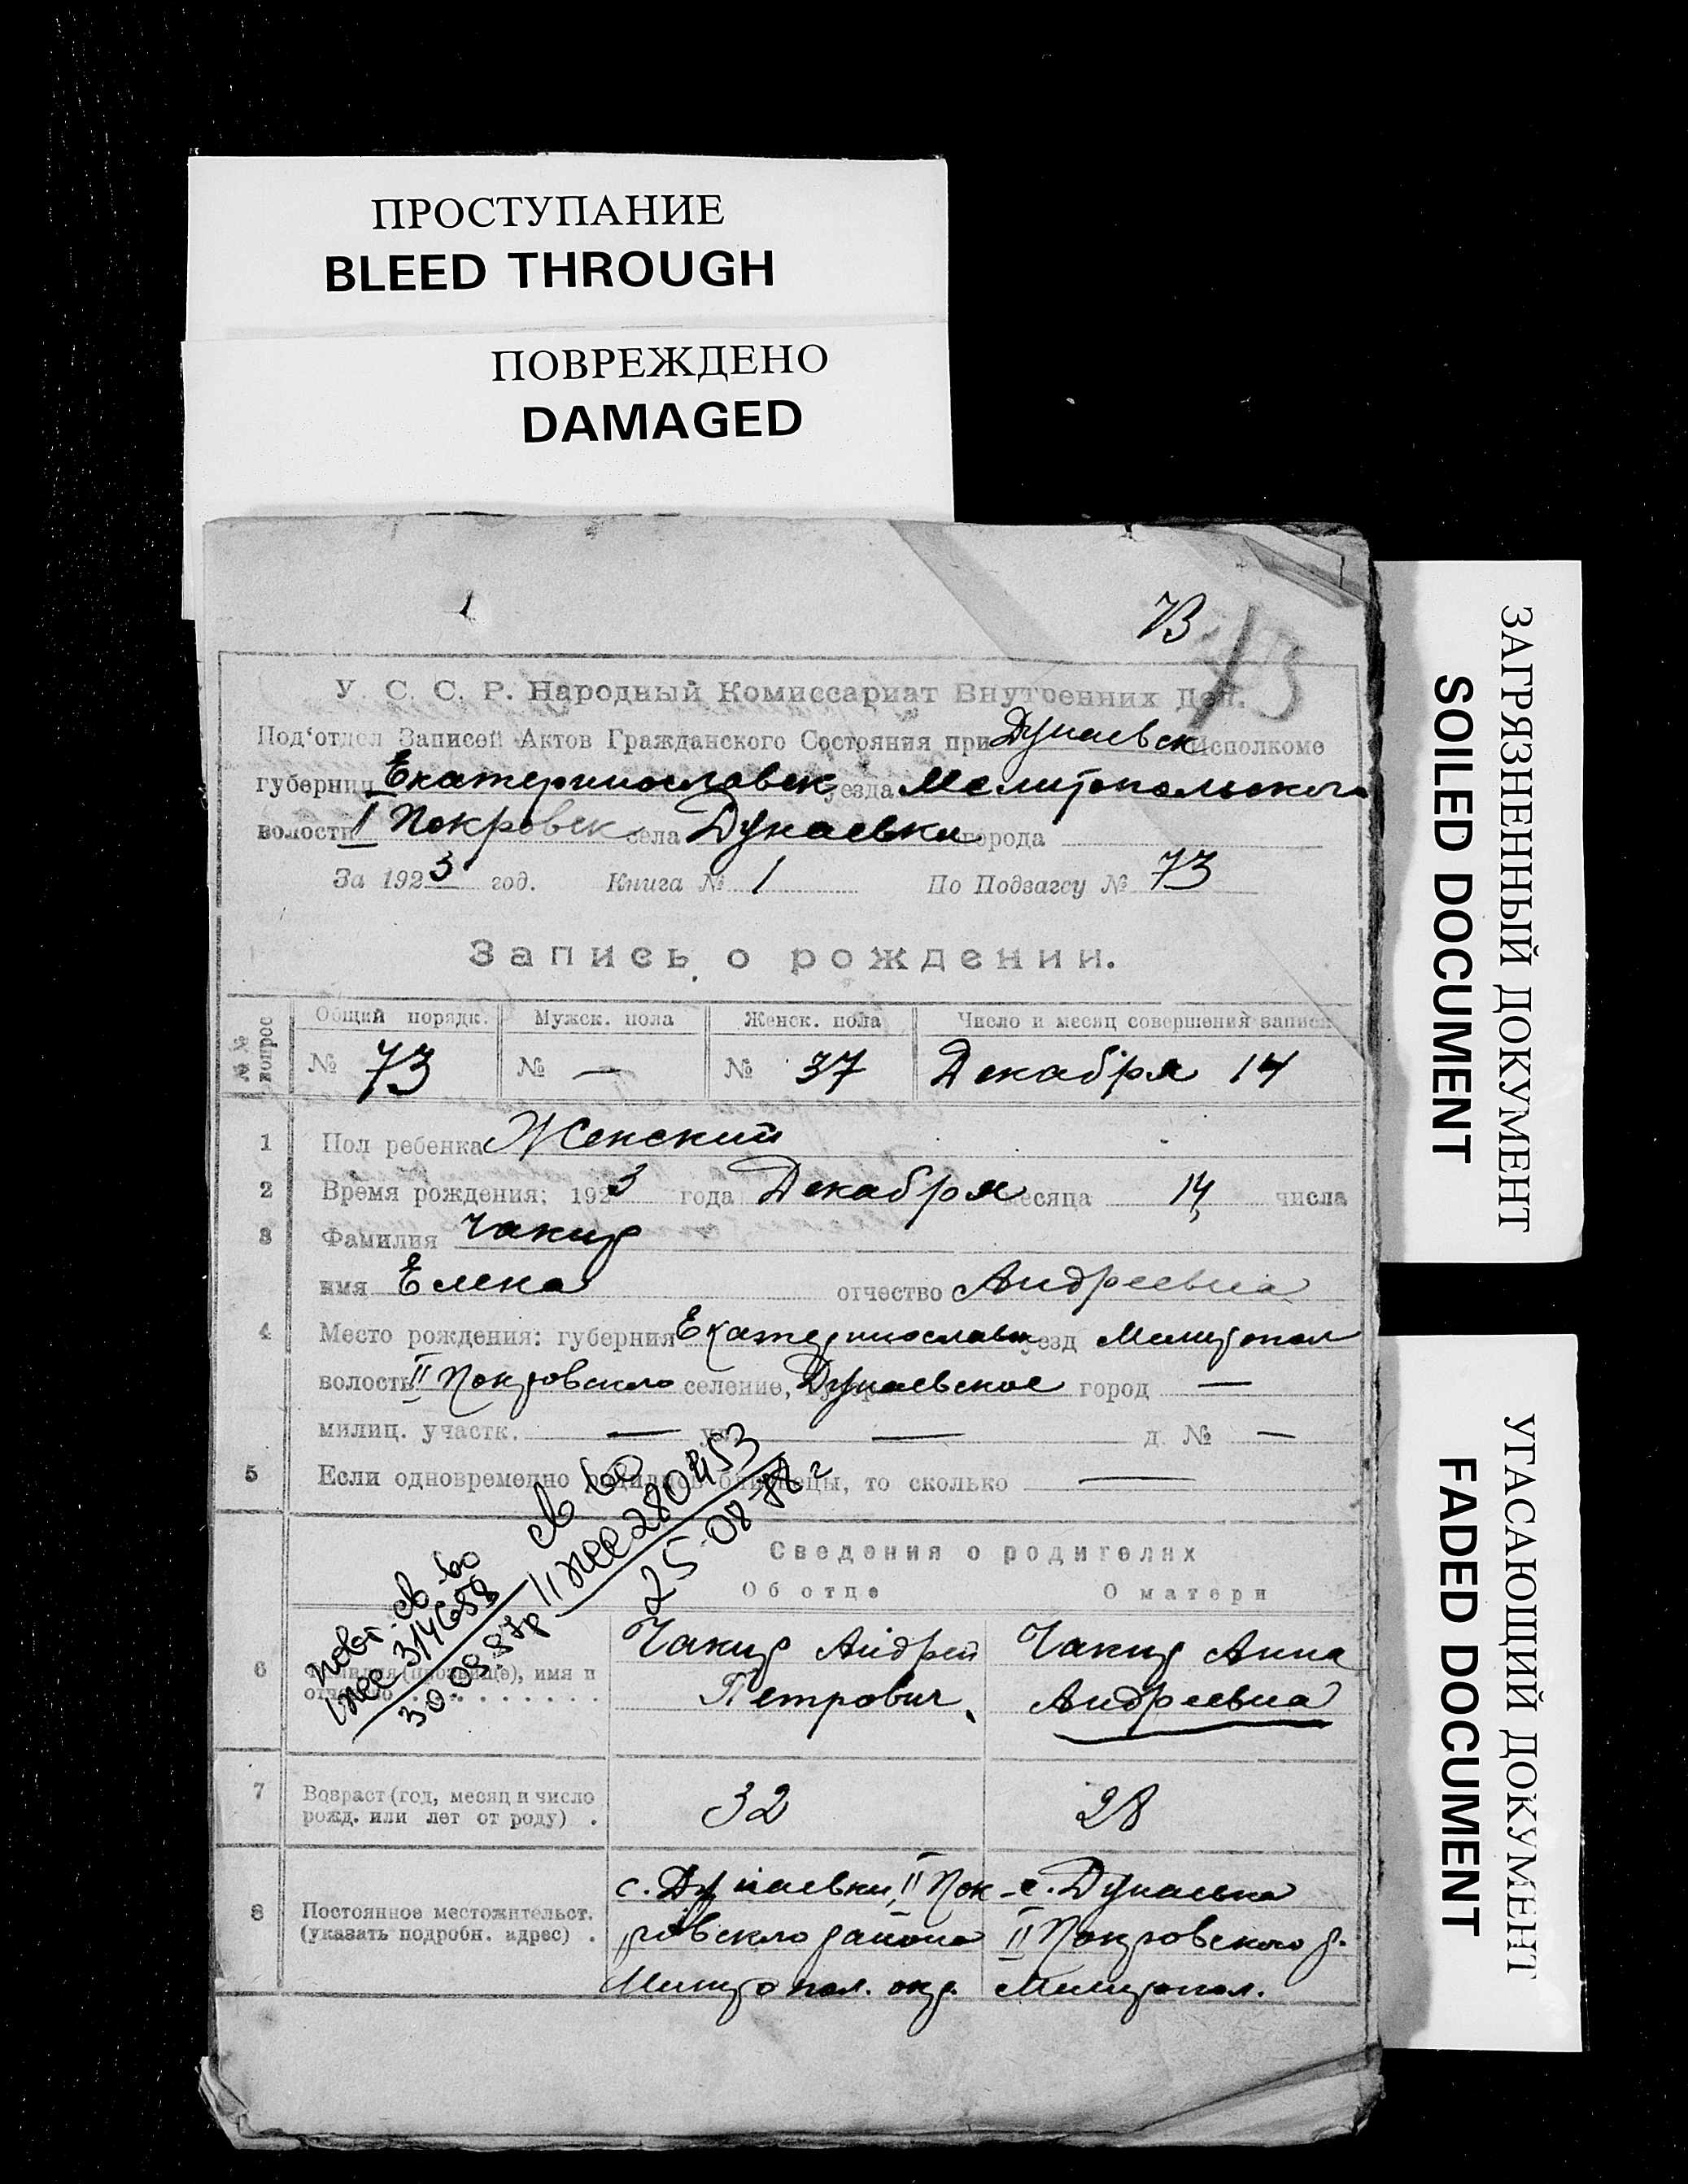 ПРОСТУПАНИЕ
BLEED THROUGH
ПОВРЕЖДЕНО
DAMAGED
ЗАГРЯЗНЕННЫЙ ДОКУМЕНТ
SOILED DOCUMENT
УГАСАЮЩИЙ ДОКУМЕНТ
FADED DOCUMENT
73 73
У. С. С. Р. Народный Комиссариат Внутренних Дел.
Под'отдел Записей Актов Гражданского Состояния при Дунаевск Исполкоме
губернии Екатеринославск уезда Мелитопольского
волости II Покровск села Дунаевки города
За 1923 год. Книга № 1 По Подзагсу № 73
Запись о рождении.
№№ вопрос Общий порядк. Мужск. пола Женск. пола Число и месяц совершения записи
№ 73 № — № 37 Декабря 14
1 Пол ребенка Женский
2 Время рождения: 1923 года Декабря месяца 14 числа
3 Фамилия Чакир
имя Елена отчество Андреевна
4 Место рождения: губерния Екатеринославск уезд Мелитопол
волость II Покровского селение, Дунаевское город —
милиц. участк. — ул. — д. № —
5 Если одновременно родились близнецы, то сколько —
св во
II ЖС 280453
25 08 г
повт. св-во
ЖС 314658
30.09.87р
Сведения о родителях
Об отце О матери
6 Фамилия (прозвище), имя и отчество Чакир Андрей Чакир Анна
Петрович Андреевна
7 Возраст (год, месяц и число
рожд. или лет от роду) . 32 28
8 Постоянное местожительст.
(указать подробн. адрес) .
с. Дунаевки, II Пок-
ровского района
Мелитопол. окр.
с. Дунаевка
II Покровского р.
Мелитопол.